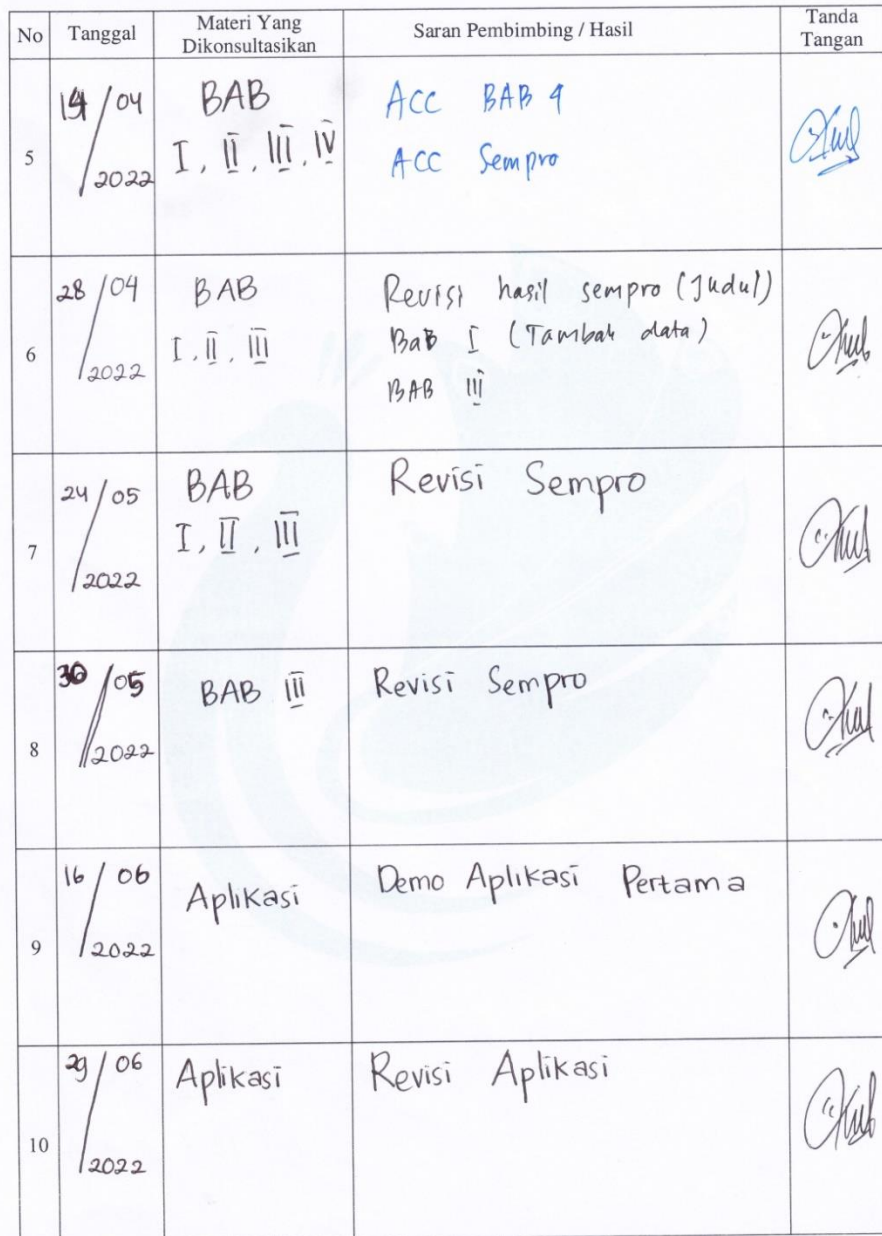 No Tanggal Materi Yang Dikonsultasikan Saran Pembimbing / Hasil Tanda Tangan
5 14/04/2022 BAB I, II, III, IV ACC BAB 4
ACC Sempro
6 28/04/2022 BAB I, II, III Revisi hasil sempro (Judul)
BaB I (Tambah data)
BAB III
7 24/05/2022 BAB I, II, III Revisi Sempro
8 30/05/2022 BAB III Revisi Sempro
9 16/06/2022 Aplikasi Demo Aplikasi Pertama
10 29/06/2022 Aplikasi Revisi Aplikasi